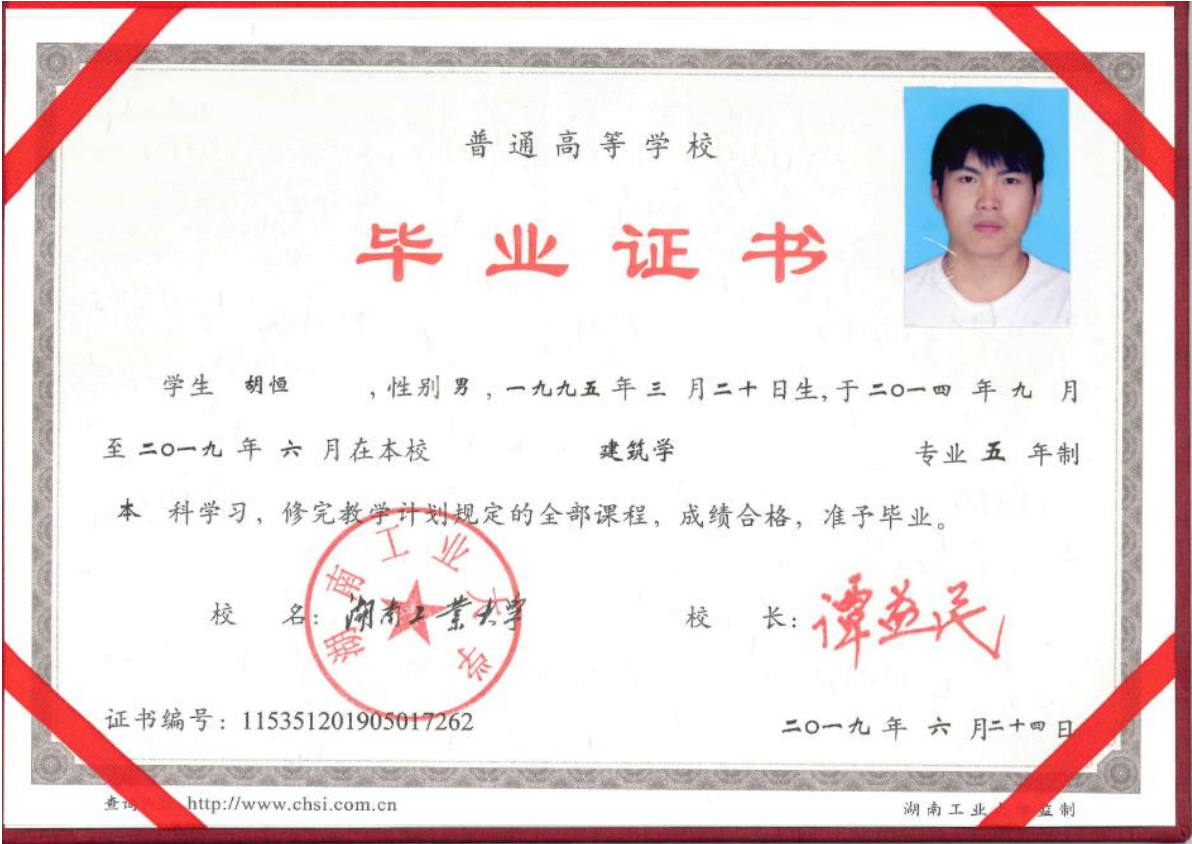 普通高等学校
毕业证书
学生 胡恒 ,性别 男 , 一九九五 年 三 月 二十 日生, 于 二○一四 年 九 月
至 二○一九 年 六 月在本校 建筑学 专业 五 年制
本 科学习，修完教学计划规定的全部课程，成绩合格，准予毕业。
湖南工业大学
校 名: 湖南工業大学 校 长: 谭益民
证书编号: 115351201905017262 二○一九 年 六 月二十四日
查询 http://www.chsi.com.cn 湖南工业 监制